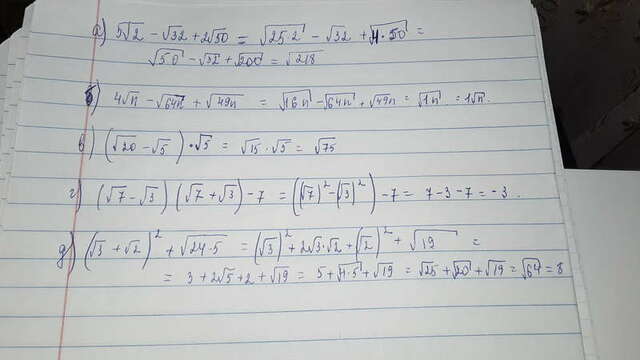 а) 5√2 - √32 + 2√50 = √25·2 - √32 + √4·50 =
√50 - √32 + √200 = √218
б) 4√n - √64n + √49n = √16n - √64n + √49n = √1n = 1√n.
в) (√20 - √5)·√5 = √15·√5 = √75
г) (√7 - √3)(√7 + √3) - 7 = (√7)² - (√3)²) - 7 = 7 - 3 - 7 = -3.
д) (√3 + √2)² + √24-5 = (√3)² + 2√3·√2 + (√2)² + √19 =
= 3 + 2√5 + 2 + √19 = 5 + √4·5 + √19 = √25 + √20 + √19 = √64 = 8